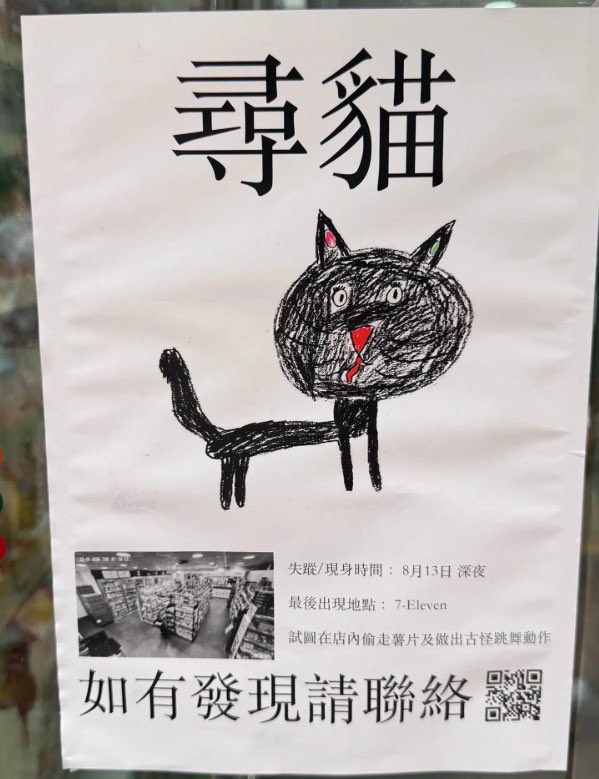 尋貓
失蹤/現身時間： 8月13日 深夜
最後出現地點： 7-Eleven
試圖在店內偷走薯片及做出古怪跳舞動作
如有發現請聯絡